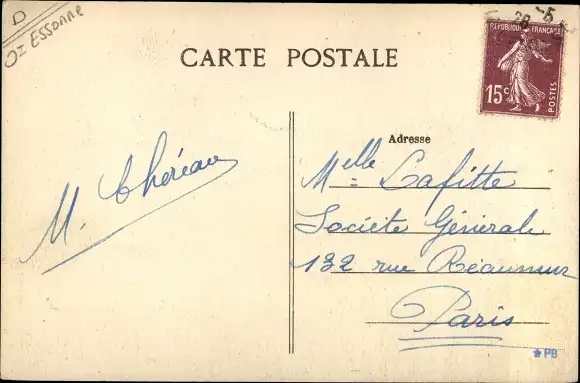 D
ESSONNE
28 -5
RÉPUBLIQUE FRANÇAISE
15c
POSTES
CARTE POSTALE
Adresse
M. Théreau
Melle Lafitte
Société Générale
132 rue Réaumur
Paris
★PB